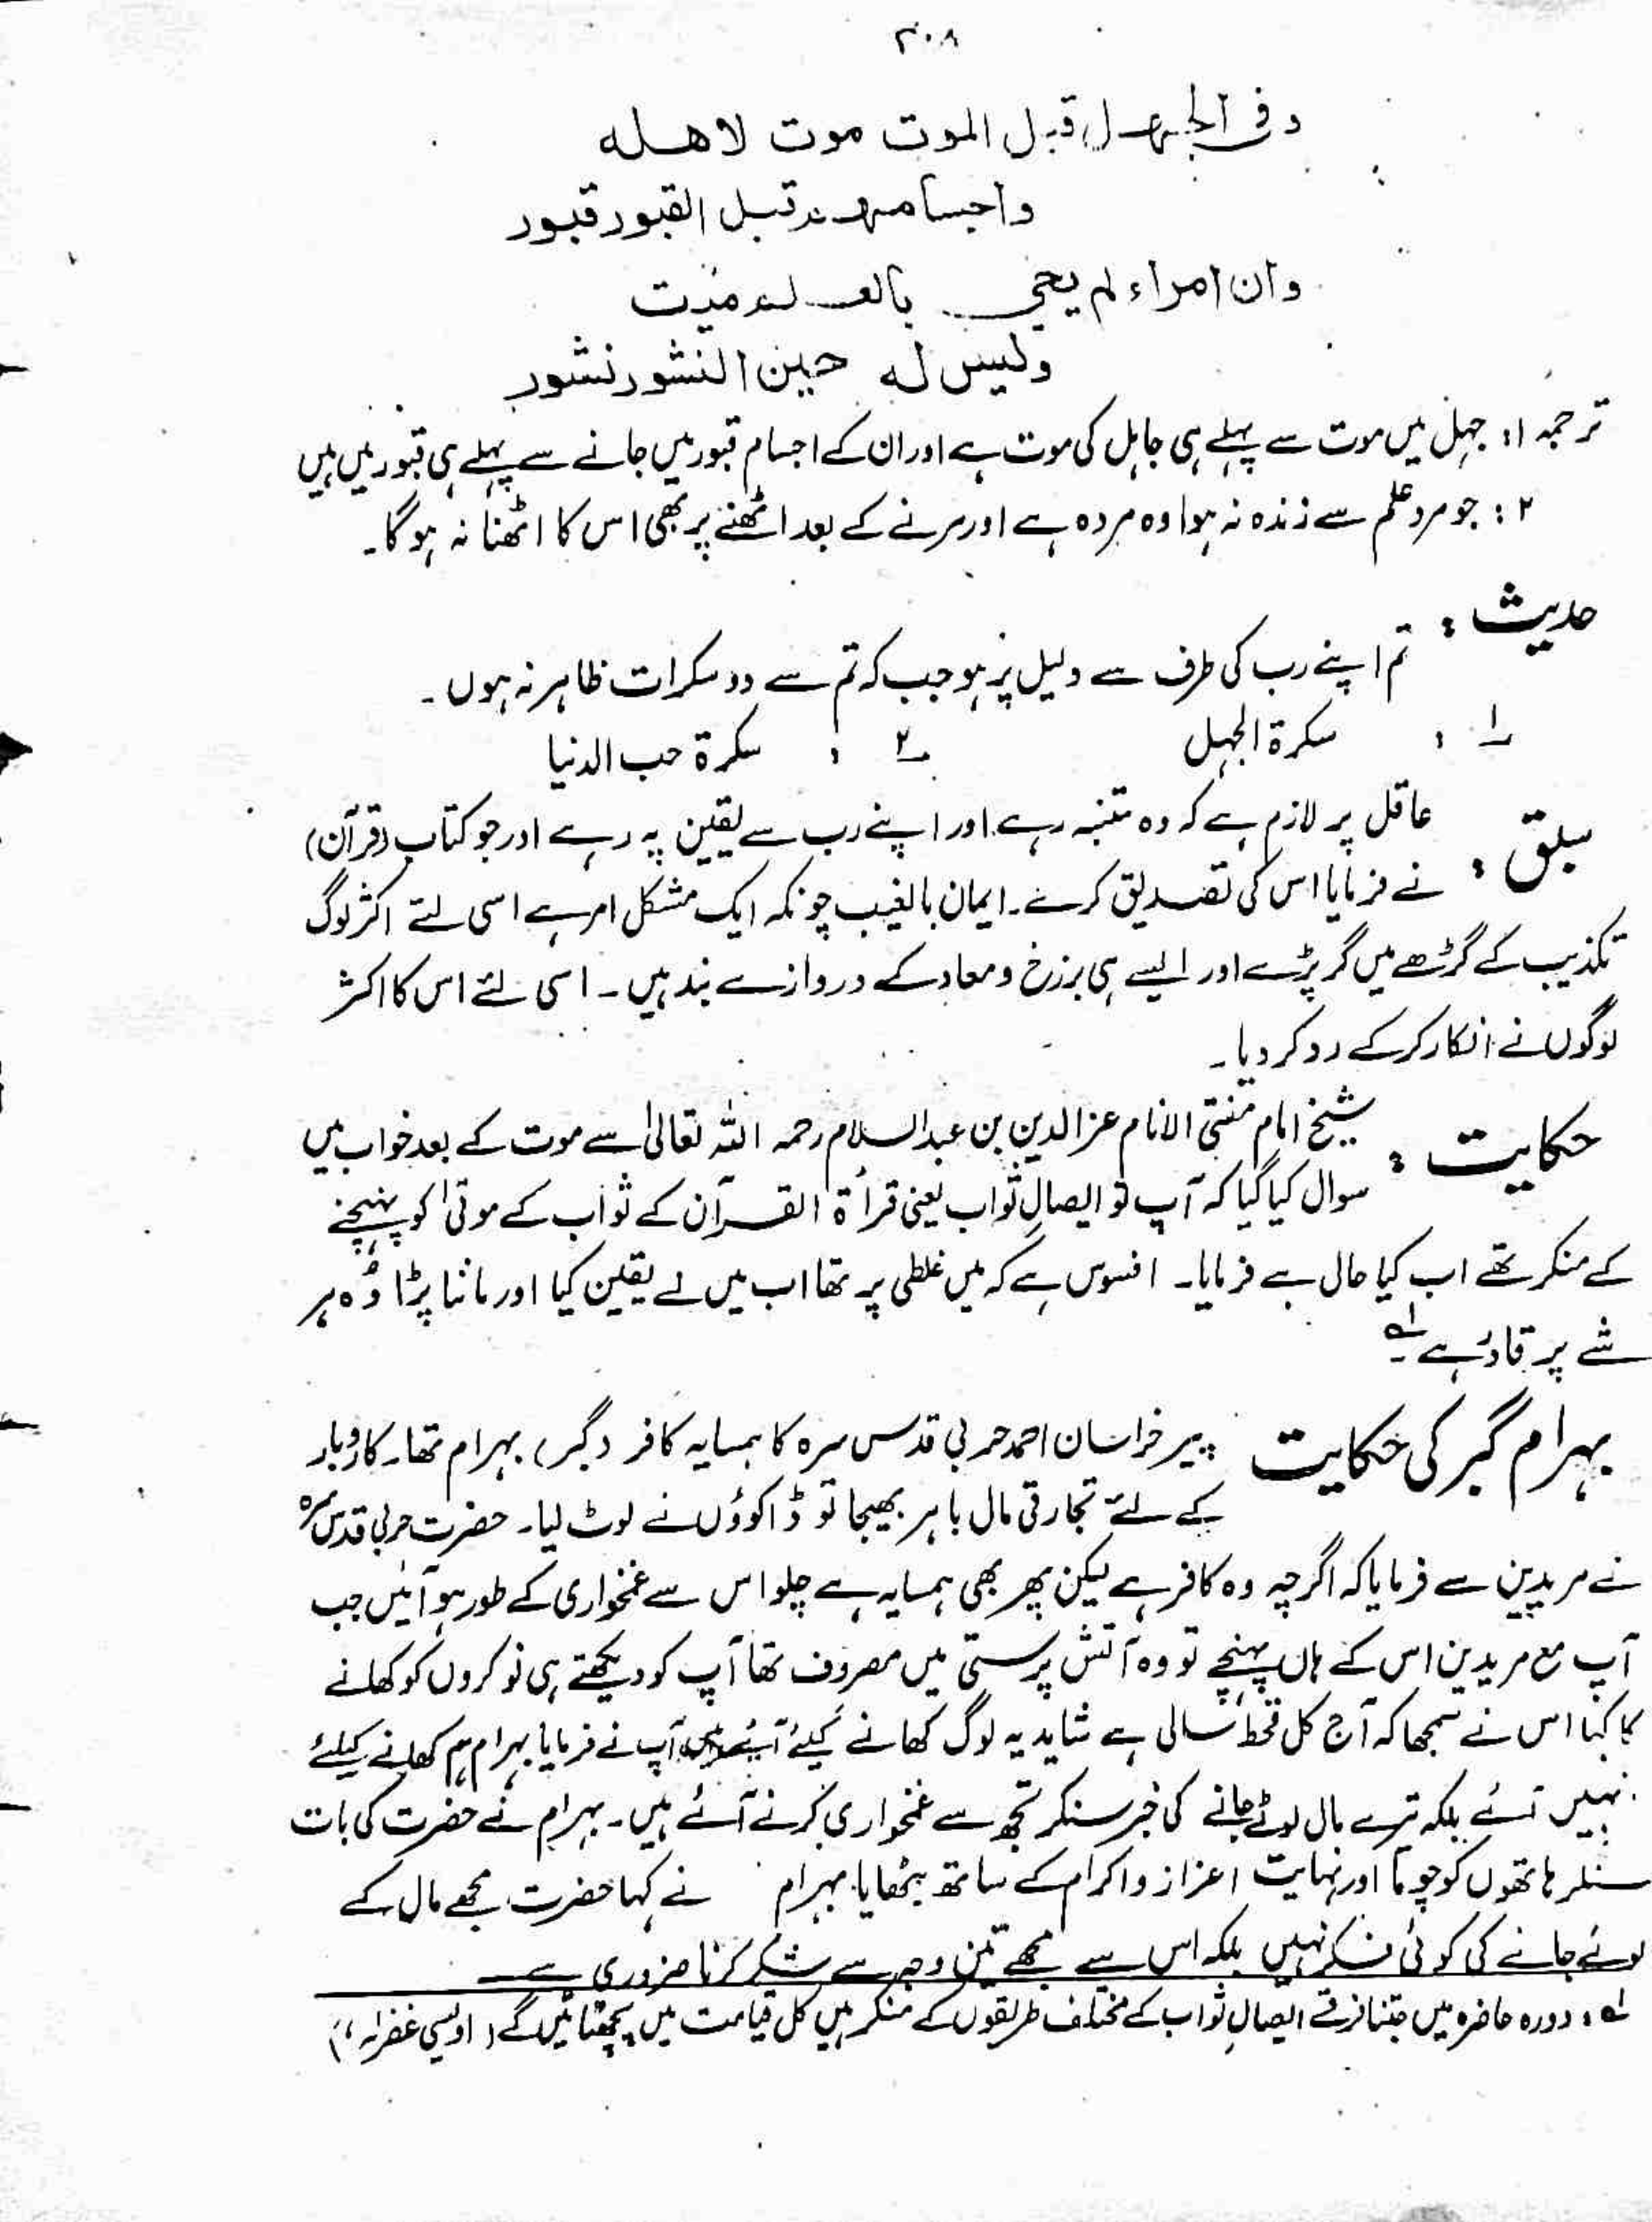 ٣٠٨
وفی الجہل قبل الموت موت لاهله
واجسامهم قبل القبور قبور
وان امراء لم یحی بالعلم میت
ولیس له حین النشور نشور
ترجمہ ١: جہل میں موت سے پہلے ہی جاہل کی موت ہے اور ان کے اجسام قبور میں جانے سے پہلے ہی قبور میں ہیں
٢: جو مرد علم سے زندہ نہ ہوا وہ مردہ ہے اور مرنے کے بعد اٹھنے پر بھی اس کا اٹھنا نہ ہو گا۔
حدیث: تم اپنے رب کی طرف سے دلیل پر ہو جب کہ تم سے دو سکرات ظاہر نہ ہوں۔
١: سکرۃ الجہل ٢: سکرۃ حب الدنیا
سبق: عاقل پر لازم ہے کہ وہ متنبہ رہے اور اپنے رب سے یقین پہ رہے اور جو کتاب (قرآن)
نے فرمایا اس کی تصدیق کرے۔ ایمان بالغیب چونکہ ایک مشکل امر ہے اسی لئے اکثر لوگ
تکذیب کے گڑھے میں گر پڑے اور ایسے ہی برزخ و معاد کے دروازے بند ہیں۔ اسی لئے اس کا اکثر
لوگوں نے انکار کر کے رد کر دیا۔
حکایت: شیخ امام مفتی الانام عزالدین بن عبدالسلام رحمہ اللہ تعالیٰ سے موت کے بعد خواب میں
سوال کیا گیا کہ آپ تو ایصالِ ثواب یعنی قرأۃ القرآن کے ثواب کے موتیٰ کو پہنچنے
کے منکر تھے اب کیا حال ہے فرمایا۔ افسوس ہے کہ میں غلطی پر تھا اب میں نے یقین کیا اور ماننا پڑا وُہ ہر
شے پر قادر ہے لہ
بہرام گبر کی حکایت پیر خراسان احمد حربی قدس سرہ کا ہمسایہ کافر (گبر) بہرام تھا۔ کاروبار
کے لئے تجارتی مال باہر بھیجا تو ڈاکوؤں نے لوٹ لیا۔ حضرت حربی قدس سرہ
نے مریدین سے فرمایا کہ اگرچہ وہ کافر ہے لیکن پھر بھی ہمسایہ ہے چلو اس سے غمخواری کے طور ہو آئیں جب
آپ مع مریدین اس کے ہاں پہنچے تو وہ آتش پرستی میں مصروف تھا آپ کو دیکھتے ہی نوکروں کو کھانے
کا کہا اس نے سمجھا کہ آج کل قحط سالی ہے شاید یہ لوگ کھانے کیلئے آئے ہیں آپ نے فرمایا بہرام ہم کھانے کیلئے
نہیں آئے بلکہ تیرے مال لوٹے جانے کی خبر سنکر تجھ سے غمخواری کرنے آئے ہیں۔ بہرام نے حضرت کی بات
سنکر ہاتھوں کو چوما اور نہایت اعزاز و اکرام کے ساتھ بٹھایا بہرام نے کہا حضرت مجھے مال کے
لوٹے جانے کی کوئی فکر نہیں بلکہ اس سے مجھے تین وجہ سے شکر کرنا ضروری ہے
لہ: دورہ حاضرہ میں جتنا فرقے ایصالِ ثواب کے مختلف طریقوں کے منکر ہیں کل قیامت میں پچھتائیں گے (اویسی غفرلہ)